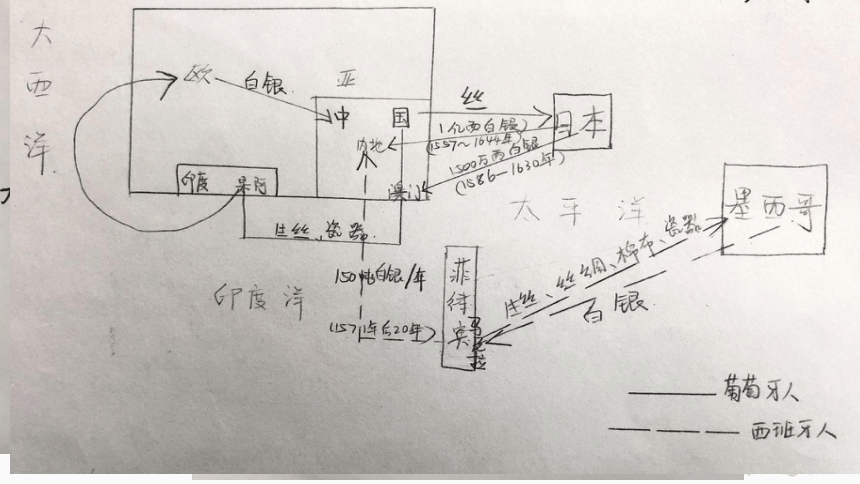 大
西
洋
欧
白银
亚
中 国
丝
日本
1亿两白银
(1557~1644年)
内地
1500万两白银
(1586—1630年)
澳门
印度 果阿
生丝、瓷器
太平洋
墨西哥
150吨白银/年
菲律宾
马尼拉
生丝、丝绸、棉布、瓷器
白银
印度洋
(1571年后20年)
葡萄牙人
西班牙人